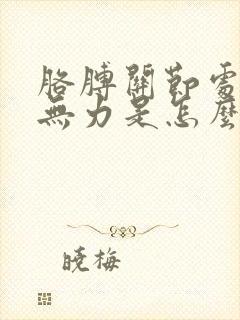 胳膊關節處
無力是怎麼
曉梅